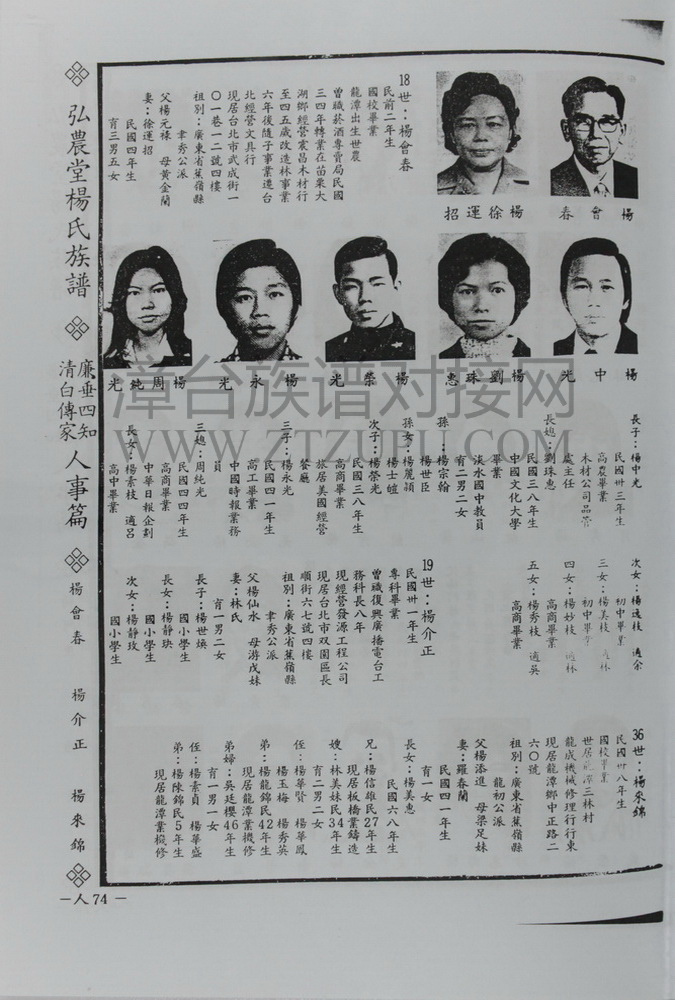 弘農堂楊氏族譜
廉垂四知
清白傳家
人事篇
楊會春
楊介正
楊來錦
—人74—
楊會春
楊徐運招
楊中光
楊劉珠惠
楊榮光
楊永光
楊周純光
18世：楊會春
民前二年生
國校畢業
龍潭出生世農
曾職菸酒專賣局民國
三四年轉業在苗栗大
湖鄉經營震昌木材行
至四五歲改造林事業
六年後隨子事業遷台
北經營文具行
現居台北市武成街一
〇一巷一二號四樓
祖別：廣東省蕉嶺縣
聿秀公派
父楊元祿 母黃金蘭
妻：徐運招
民國四年生
育三男五女
長子：楊中光
民國卅三年生
高農畢業
木材公司品管
處主任
長媳：劉珠惠
民國三八年生
中國文化大學
畢業
淡水國中教員
育二男二女
孫：楊宗翰
楊世臣
孫女：楊麗頴
楊士皚
次子：楊榮光
民國三八年生
高商畢業
旅居美國經營
餐廳
三子：楊永光
民國四一年生
高工畢業
中國時報業務
員
三媳：周純光
民國四四年生
高商畢業
中華日報企劃
長女：楊素枝 適呂
高中畢業
次女：楊逸枝 適余
初中畢業
三女：楊美枝 適林
初中畢業
四女：楊妙枝 適林
高商畢業
五女：楊秀枝 適吳
高商畢業
19世：楊介正
民國卅一年生
專科畢業
曾職復興廣播電台工
務科長八年
現經營發源工程公司
現居台北市双園區長
順街六七號四樓
祖別：廣東省蕉嶺縣
聿秀公派
父楊仙水 母游戊妹
妻：林氏
育一男二女
長子：楊世煥
國小學生
長女：楊靜玦
國小學生
次女：楊靜玫
國小學生
36世：楊來錦
民國卅八年生
國校畢業
世居龍潭三林村
龍成機械修理行行東
現居龍潭鄉中正路二
六〇號
祖別：廣東省蕉嶺縣
龍初公派
父楊添進 母梁足妹
妻：羅春蘭
民國四一年生
育一女
長女：楊美惠
民國六八年生
兄：楊信雄民27年生
現居板橋業鑄造
嫂：林美妹民34年生
育二男二女
侄：楊華賢 楊華鳳
楊玉梅 楊秀英
弟：楊龍錦民42年生
現居龍潭業機修
弟婦：吳廷櫻46年生
育一男一女
侄：楊素貞 楊華盛
弟：楊陳錦民5年生
現居龍潭業機修
漳台族谱对接网
WWW.ZTZUPU.COM